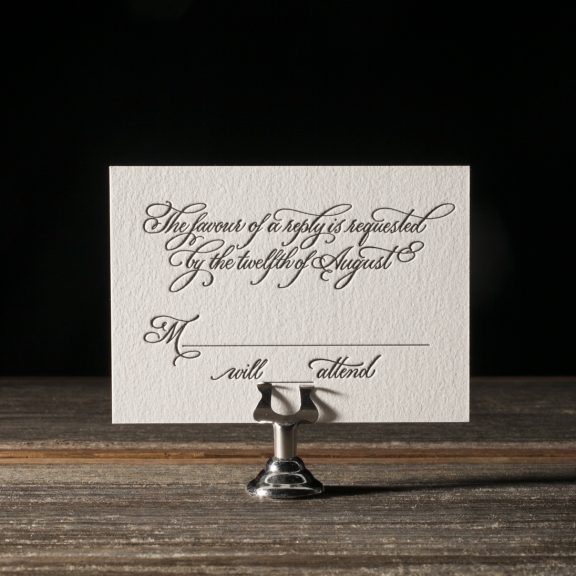 The favour of a reply is requested
by the twelfth of August
M
will attend